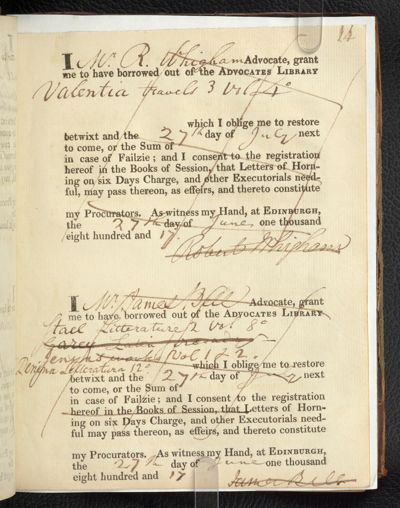 14
I Mr. R. Whigham Advocate, grant
me to have borrowed out of the ADVOCATES LIBRARY
Valentia travels 3 vol 4°
which I oblige me to restore
betwixt and the 27th day of July next
to come, or the Sum of
in case of Failzie; and I consent to the registration
hereof in the Books of Session, that Letters of Horn-
ing on six Days Charge, and other Executorials need-
ful, may pass thereon, as effeirs, and thereto constitute
my Procurators. As witness my Hand, at EDINBURGH,
the 27th day of June one thousand
eight hundred and 17
Robert Whigham
I Mr James Bell Advocate, grant
me to have borrowed out of the ADVOCATES LIBRARY
Stael Litterature 2 Vol 8°
Vol 1 & 2.
Litteratura 12° which I oblige me to restore
betwixt and the 27th day of July next
to come, or the Sum of
in case of Failzie; and I consent to the registration
hereof in the Books of Session, that Letters of Horn-
ing on six Days Charge, and other Executorials need-
ful may pass thereon, as effeirs, and thereto constitute
my Procurators. As witness my Hand, at EDINBURGH,
the 27th day of June one thousand
eight hundred and 17
James Bell